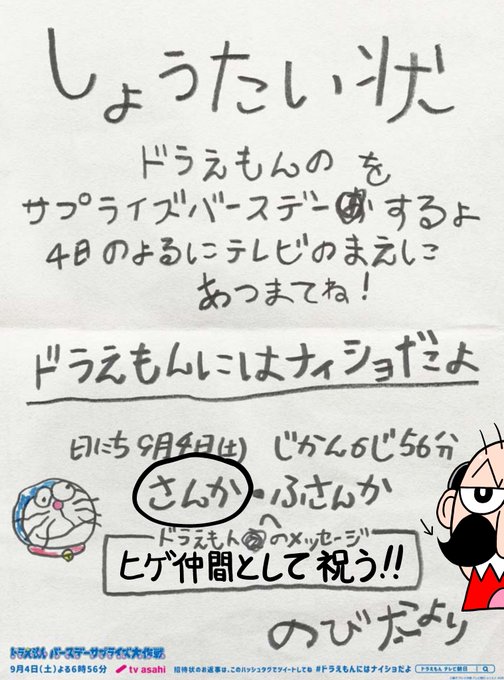 しょうたい状
ドラえもんの を
サプライズバースデーするよ
4日のよるにテレビのまえに
あつまてね!
ドラえもんにはナイショだよ
日にち9月4日(土) じかん6じ56分
さんか・ふさんか
ドラえもんへのメッセージ
ヒゲ仲間として祝う!!
のびたより
ドラえもん バースデーサプライズ大作戦
9月4日(土)よる6時56分 tv asahi 招待状のお返事は、このハッシュタグでツイートしてね #ドラえもんにはナイショだよ ドラえもん テレビ朝日